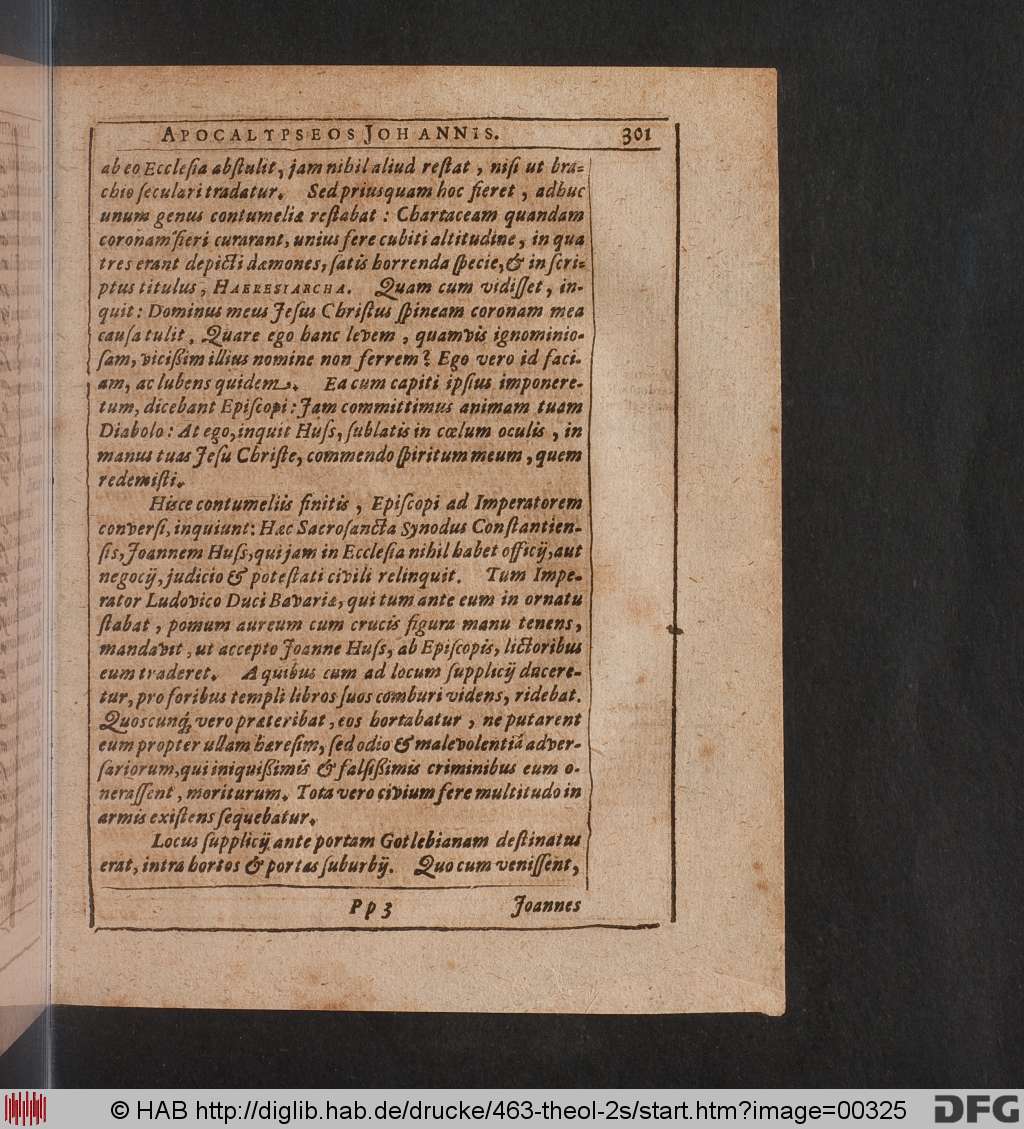 APOCALYPSEOS JOHANNIS. 301
ab eo Ecclesia abstulit, jam nihil aliud restat, nisi ut bra=
chio seculari tradatur. Sed priusquam hoc fieret, adhuc
unum genus contumeliæ restabat: Chartaceam quandam
coronam fieri curarant, unius fere cubiti altitudine, in qua
tres erant depicti dæmones, satis horrenda specie, & inscri=
ptus titulus, HAERESIARCHA. Quam cum vidisset, in-
quit: Dominus meus Jesus Christus spineam coronam mea
causa tulit. Quare ego hanc levem, quamvis ignominio-
sam, vicißim illius nomine non ferrem? Ego vero id faci-
am, ac lubens quidem. Ea cum capiti ipsius imponere-
tum, dicebant Episcopi: Jam committimus animam tuam
Diabolo: At ego, inquit Huss, sublatis in cœlum oculis, in
manus tuas Jesu Christe, commendo spiritum meum, quem
redemisti.
Hisce contumeliis finitis, Episcopi ad Imperatorem
conversi, inquiunt: Hæc Sacrosancta Synodus Constantien-
sis, Joannem Huss, qui jam in Ecclesia nihil habet officij, aut
negocij, judicio & potestati civili relinquit. Tum Impe-
rator Ludovico Duci Bavariæ, qui tum ante eum in ornatu
stabat, pomum aureum cum crucis figura manu tenens,
mandavit, ut accepto Joanne Huss, ab Episcopis, lictoribus
eum traderet. A quibus cum ad locum supplicij ducere-
tur, pro foribus templi libros suos comburi videns, ridebat.
Quoscunq́; vero præteribat, eos hortabatur, ne putarent
eum propter ullam hæresim, sed odio & malevolentiâ adver-
sariorum, qui iniquißimis & falsißimis criminibus eum o-
nerassent, moriturum. Tota vero civium fere multitudo in
armis existens sequebatur.
Locus supplicij ante portam Gotlebianam destinatus
erat, intra hortos & portas suburbij. Quo cum venissent,
Pp 3 Joannes
© HAB http://diglib.hab.de/drucke/463-theol-2s/start.htm?image=00325 DFG